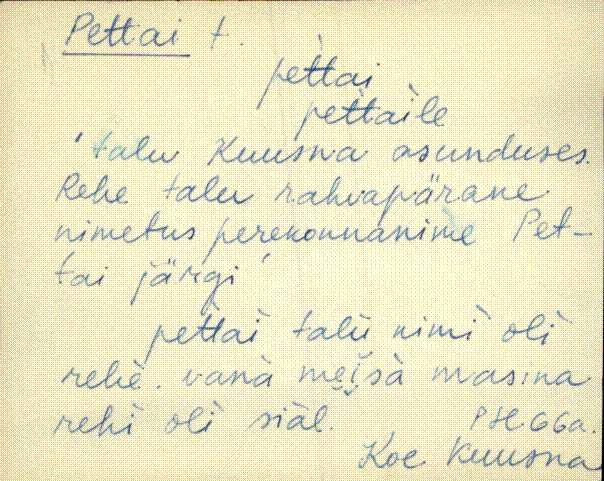 Pettai t.
pèttai
pèttàile
'talu Kuusna asunduses.
Rehe talu rahvapärane
nimetus perekonnanime Pet-
tai järgi'
pèttai talù nimì olì
rehè. vanà mèisà masina
rehì olì siàl. PSt 66a.
Koe Kuusna